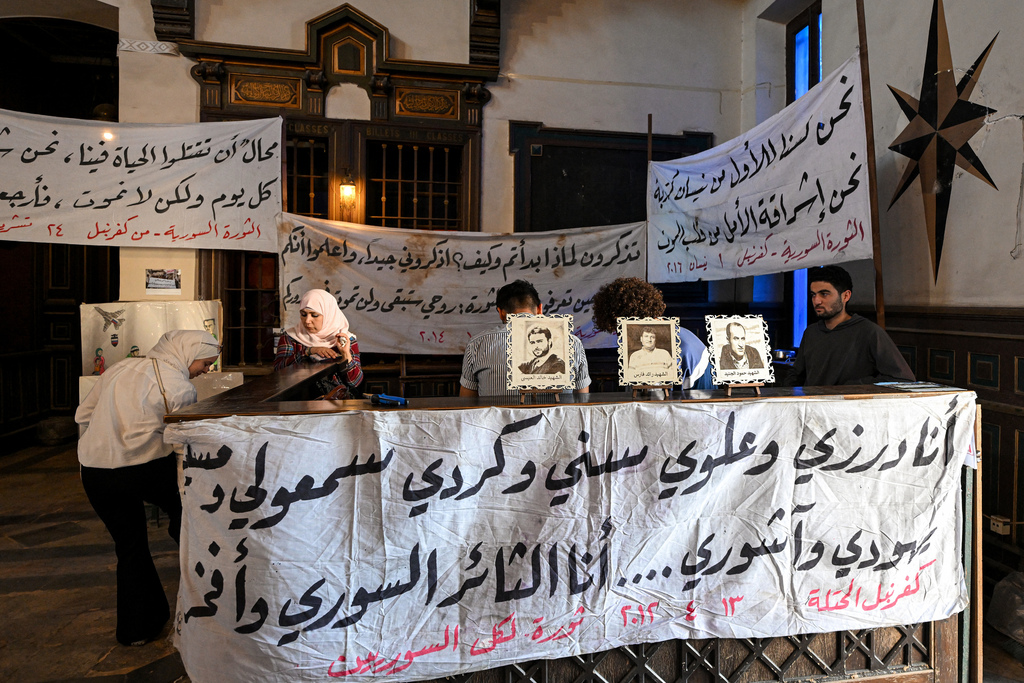 محالٌ أن تقتلوا الحياة فينا، نحن
كل يوم ولكن لا نموت، فأرجع
الثورة السورية - من كفرنبل ٢٤ تشر
CLASSES
BILLETS
CLASSES
تذكرون لماذا بدأتم وكيف؟ اذكروني جيداً، واعلموا أنكم
ثورة: روحي ستبقى ولن تموت
٢٠١٤
نحن لسنا للأول من نيسان كذبة
نحن إشراقة الأمل من طلب الموت
الثورة السورية - كفرنبل ١ نيسان ٢٠١٦
الشهيد خالد العيسى
الشهيد رائد فارس
الشهيد حمود الجنيد
أنا درزي وعلوي سني وكردي سمعولي و
يهودي وآشوري .... أنا الثائر السوري وأفخ
كفرنبل المحتلة ١٣ ٤ ٢٠١٢ ثورة لكل السوريين